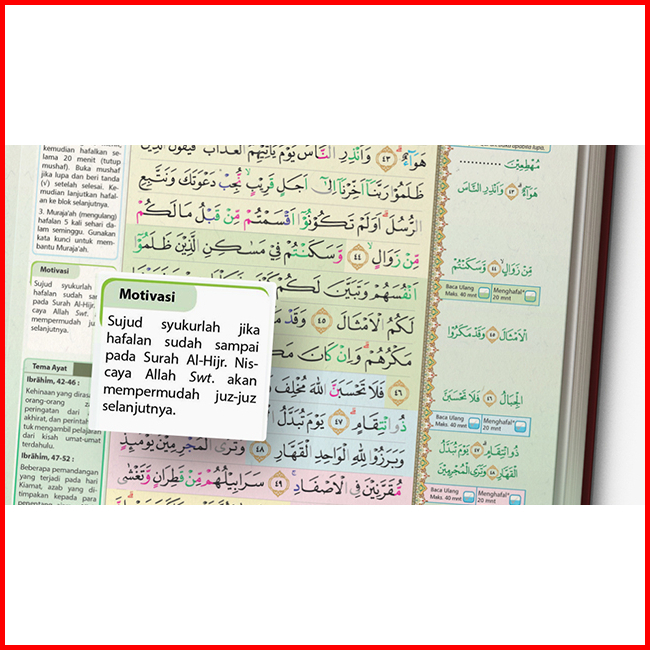 kemudian hafalkan se-
lama 20 menit (tutup
mushaf). Buka mushaf
jika lupa dan beri tanda
(v) setelah selesai. Ke-
mudian lanjutkan hafal-
an ke blok selanjutnya.
3. Muraja'ah (mengulang)
hafalan 5 kali sehari da-
lam seminggu. Gunakan
kata kunci untuk mem-
bantu Muraja'ah.
Motivasi
Sujud syukurlah
hafalan sudah
pada Surah Al-Hijr.
caya Allah Swt.
mempermudah
selanjutnya.
Motivasi
Sujud syukurlah jika
hafalan sudah sampai
pada Surah Al-Hijr. Nis-
caya Allah Swt. akan
mempermudah juz-juz
selanjutnya.
Tema Ayat
Ibrâhîm, 42-46 :
Kehinaan yang
orang-orang
peringatan dari
akhirat, dan
tuk mengambil pelajaran
dari kisah umat-umat
terdahulu.
Ibrâhîm, 47-52 :
Beberapa pemandangan
yang terjadi pada hari
Kiamat, azab yang di-
timpakan kepada para
هَوَآءٌ ۗ ٤٣ وَاَنْذِرِ النَّاسَ يَوْمَ يَأْتِيْهِمُ الْعَذَابُ فَيَقُوْلُ الَّذِيْنَ
ظَلَمُوْا رَبَّنَآ اَخِّرْنَآ اِلٰٓى اَجَلٍ قَرِيْبٍۙ نُّجِبْ دَعْوَتَكَ وَنَتَّبِعِ
الرُّسُلَ ۗ اَوَلَمْ تَكُوْنُوْٓا اَقْسَمْتُمْ مِّنْ قَبْلُ مَا لَكُمْ
مِّنْ زَوَالٍۙ ٤٤ وَّسَكَنْتُمْ فِيْ مَسٰكِنِ الَّذِيْنَ ظَلَمُوْٓا
اَنْفُسَهُمْ وَتَبَيَّنَ لَكُمْ
لَكُمُ الْاَمْثَالَ ٤٥ وَقَدْ
مَكْرُهُمْ ۗ وَاِنْ كَانَ
٤٦ فَلَا تَحْسَبَنَّ اللّٰهَ مُخْلِفَ
ذُو انْتِقَامٍۗ ٤٧ يَوْمَ تُبَدَّلُ
وَبَرَزُوْا لِلّٰهِ الْوَاحِدِ الْقَهَّارِ ٤٨ وَتَرَى الْمُجْرِمِيْنَ يَوْمَىِٕذٍ
مُّقَرَّنِيْنَ فِى الْاَصْفَادِۚ ٤٩ سَرَابِيْلُهُمْ مِّنْ قَطِرَانٍ وَّتَغْشٰى
apabila lupa.
مُهْطِعِيْنَ ............
هَوَآءٌ ۗ ٤٣ وَاَنْذِرِ النَّاسَ
مِّنْ زَوَالٍۙ ٤٤ وَّسَكَنْتُمْ
Baca Ulang
Maks. 40 mnt
Menghafal*
20 mnt
الْاَمْثَالَ ٤٥ وَقَدْ مَكَرُوْا
الْجِبَالُ ٤٦ فَلَا تَحْسَبَنَّ
Baca Ulang
Maks. 40 mnt
Menghafal*
20 mnt
ذُو انْتِقَامٍۗ ٤٧ يَوْمَ تُبَدَّلُ
الْقَهَّارِ ٤٨ وَتَرَى الْمُجْرِمِيْنَ
Baca Ulang
Maks. 40 mnt
Menghafal*
20 mnt